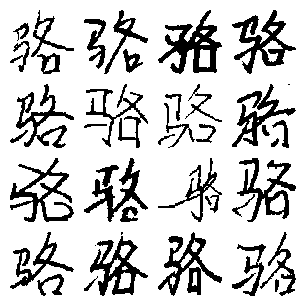 骆骆骆骆
骆骆骆骆
骆骆骆骆
骆骆骆骆